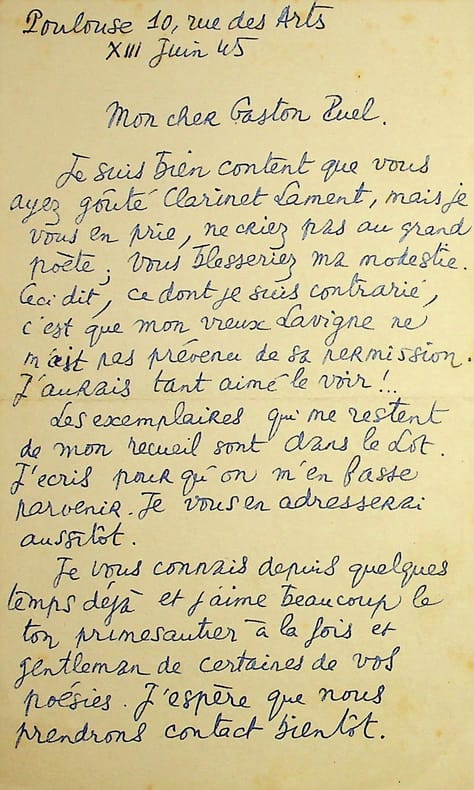 Toulouse 10, rue des Arts
XIII Juin 45
Mon cher Gaston Puel.
Je suis bien content que vous
ayez goûté Clarinet Lament, mais je
vous en prie, ne criez pas au grand
poète ; vous blesseriez ma modestie.
Ceci dit, ce dont je suis contrarié,
c'est que mon vieux Lavigne ne
m'ait pas prévenu de sa permission.
J'aurais tant aimé le voir !..
Les exemplaires qui me restent
de mon recueil sont dans le Lot.
J'écris pour qu'on m'en fasse
parvenir. Je vous en adresserai
aussitôt.
Je vous connais depuis quelques
temps déjà et j'aime beaucoup le
ton primesautier à la fois et
gentleman de certaines de vos
poésies. J'espère que nous
prendrons contact bientôt.